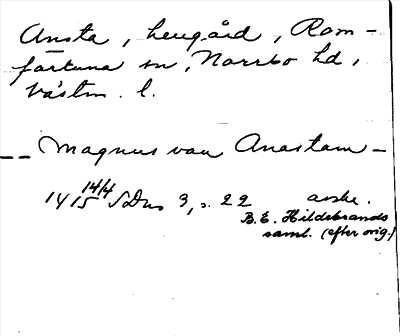 Ansta, hemgård, Rom-
fartuna sn, Norrbo hd,
Västm. l.
-- Magnus van Anastam -
1415 14/4 SDns 3, s. 22 avskr.
B. E. Hildebrands
saml. (efter orig.)